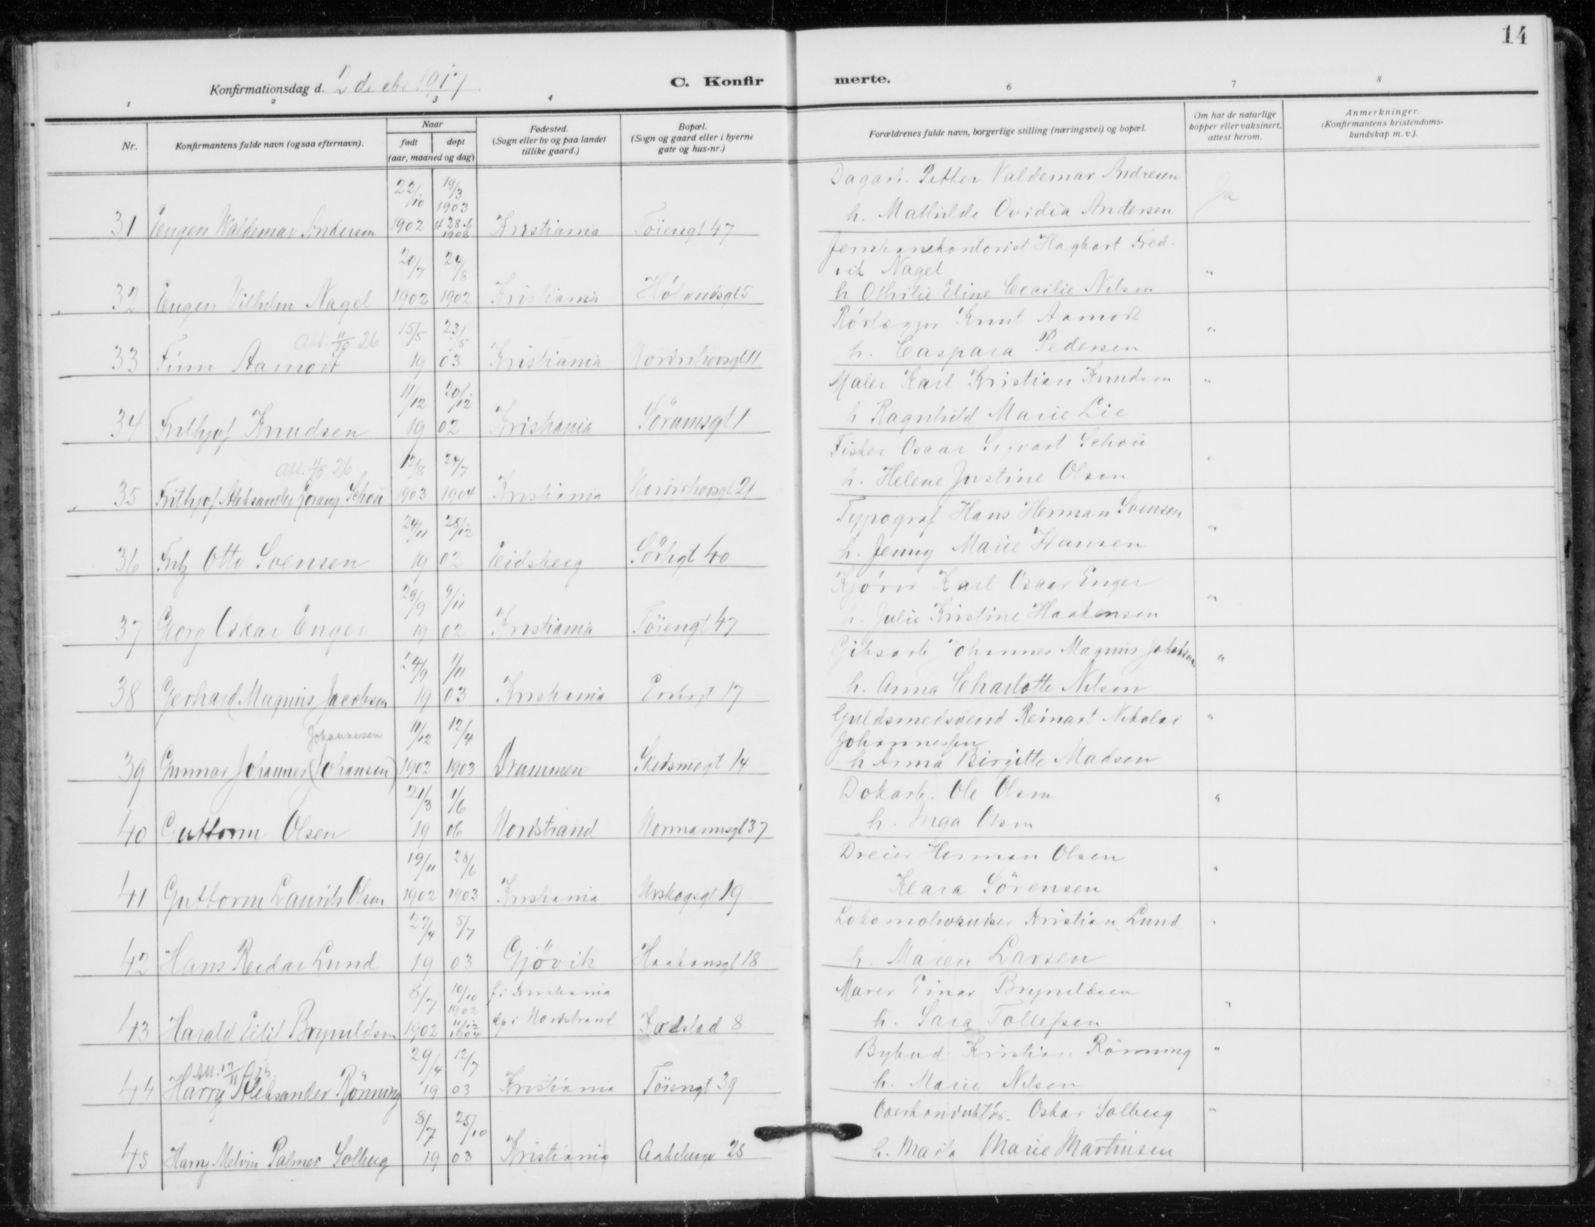 14
Konfirmationsdag d. 2 decbr 1917
C. Konfir merte.
1 2 3 4 6 7 8
Nr. Konfirmantens fulde navn (ogsaa efternavn). Naar født døpt (aar, maaned og dag) Fødested. (Sogn eller by og paa landet tillike gaard.) Bopæl. (Sogn og gaard eller i byerne gate og hus-nr.) Forældrenes fulde navn, borgerlige stilling (næringsvei) og bopæl. Om hat de naturlige kopper eller vaksinert, attest herom. Anmerkninger. (Konfirmantens kristendoms-kundskap m. v.).
22/10 19/3 1903 Dagarb. Petter Valdemar Andresen Ja
31 Eugen Waldemar Andersen 1902 28.6 1903 Kristiania Töiengt 47 h. Mathilde Ovidia Andersen
20/7 24/8 Jernbanekontorist Haghart Fredrik Nagel "
32 Eugen Vilhelm Nagel 1902 1902 Kristiania h Othilie Eline Cecilie Nilsen
Att. 26 15/5 23/5 Rörlægger Knut Aamodt "
33 Finn Aamodt 19 03 Kristiania h. Caspara Pedersen
11/12 20/12 Maler Karl Kristian Knudsen "
34 Frithjof Knudsen 19 02 Kristiania Söramsgt 1 h Ragnhild Marie Lie
Att. 26 12/8 24/7 Fisker Oscar Schou "
35 Frithjof Aleksander Schou 1903 1904 Kristiania 21 h. Helene Justine Olsen
24/11 25/12 Typograf Hans Herman Svensen "
36 Fritz Otto Svensen 19 02 Eidsberg Sörligt 40 h. Jenny Marie Hansen
29/9 9/11 Kjörer Karl Oscar Enger "
37 Georg Oskar Enger 19 02 Kristiania Töiengt 47 h. Julie Kristine Haakensen
24/9 1/11 Gibsarb Johannes Magnus Jakobsen "
38 Gerhard Magnus Jacobsen 19 03 Kristiania 17 h. Anna Charlotte Nilsen
Johannesen 11/12 12/4 Guldsmedsvend Reinart Nikolai Johannessen "
39 Gunnar Johannes (Johansen) 1902 1903 Drammen Skedsmogt 14 h Anna Birgitte Madsen
21/3 1/6 Dokarb. Ole Olsen "
40 Guttorm Olsen 19 06 Nordstrand Normannsgt 37 h. Inga Olsen
19/11 28/6 Dreier Herman Olsen "
41 Guttorm Laurits Olsen 1902 1903 Kristiania Urskogsgt 19 Klara Sörensen
27/4 5/7 Kristian Lund "
42 Hans Reidar Lund 19 03 Gjövik Haakonsgt 18 h. Maren Larsen
8/7 10/10 1902 f. i Kristiania Murer Einar Brynildsen "
43 Harald Eilif Brynildsen 1902 dp i Nordstrand 8 h. Sara Tollefsen
Att. 29/4 12/7 Bybud Kristian Rönning "
44 Harry Aleksander Rönning 19 03 Kristiania Töiengt 39 h. Marie Nilsen
8/7 25/10 Overkonduktör. Oskar Solberg "
45 Harry Melvin Palmer Solberg 19 03 Kristiania Aakebergv 28 h. Marta Marie Martinsen